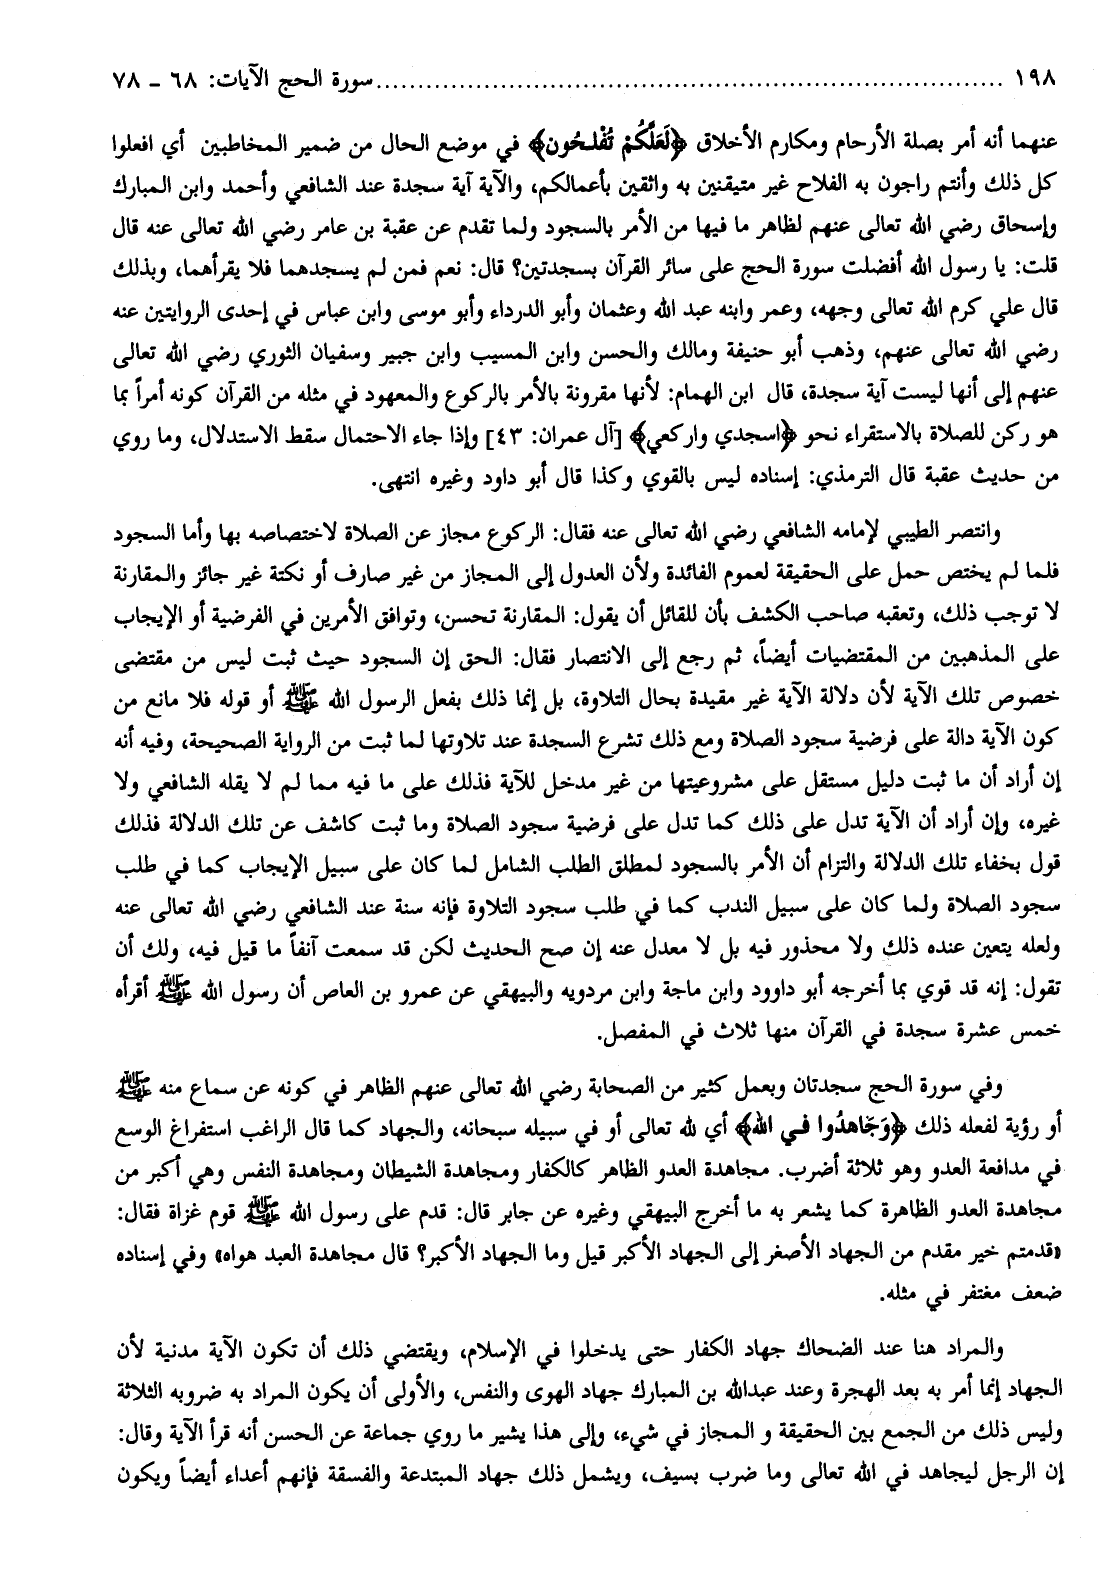 ١٩٨ ........................................ سورة الحج الآيات: ٦٨ ـ ٧٨
عنهما أنه أمر بصلة الأرحام ومكارم الأخلاق ﴿لَعَلَّكُمْ تُفْلِحُون﴾ في موضع الحال من ضمير المخاطبين أي افعلوا
كل ذلك وأنتم راجون به الفلاح غير متيقنين به واثقين بأعمالكم، والآية آية سجدة عند الشافعي وأحمد وابن المبارك
وإسحاق رضي الله تعالى عنهم لظاهر ما فيها من الأمر بالسجود ولما تقدم عن عقبة بن عامر رضي الله تعالى عنه قال
قلت: يا رسول الله أفضلت سورة الحج على سائر القرآن بسجدتين؟ قال: نعم فمن لم يسجدهما فلا يقرأهما، وبذلك
قال علي كرم الله تعالى وجهه، وعمر وابنه عبد الله وعثمان وأبو الدرداء وأبو موسى وابن عباس في إحدى الروايتين عنه
رضي الله تعالى عنهم، وذهب أبو حنيفة ومالك والحسن وابن المسيب وابن جبير وسفيان الثوري رضي الله تعالى
عنهم إلى أنها ليست آية سجدة، قال ابن الهمام: لأنها مقرونة بالأمر بالركوع والمعهود في مثله من القرآن كونه أمراً بما
هو ركن للصلاة بالاستقراء نحو ﴿اسجدي واركعي﴾ [آل عمران: ٤٣] وإذا جاء الاحتمال سقط الاستدلال، وما روي
من حديث عقبة قال الترمذي: إسناده ليس بالقوي وكذا قال أبو داود وغيره انتهى.
وانتصر الطيبي لإمامه الشافعي رضي الله تعالى عنه فقال: الركوع مجاز عن الصلاة لاختصاصه بها وأما السجود
فلما لم يختص حمل على الحقيقة لعموم الفائدة ولأن العدول إلى المجاز من غير صارف أو نكتة غير جائز والمقارنة
لا توجب ذلك، وتعقبه صاحب الكشف بأن للقائل أن يقول: المقارنة تحسن، وتوافق الأمرين في الفرضية أو الإيجاب
على المذهبين من المقتضيات أيضاً، ثم رجع إلى الانتصار فقال: الحق إن السجود حيث ثبت ليس من مقتضى
خصوص تلك الآية لأن دلالة الآية غير مقيدة بحال التلاوة، بل إنما ذلك بفعل الرسول الله ﷺ أو قوله فلا مانع من
كون الآية دالة على فرضية سجود الصلاة ومع ذلك تشرع السجدة عند تلاوتها لما ثبت من الرواية الصحيحة، وفيه أنه
إن أراد أن ما ثبت دليل مستقل على مشروعيتها من غير مدخل للآية فذلك على ما فيه مما لم لا يقله الشافعي ولا
غيره، وإن أراد أن الآية تدل على ذلك كما تدل على فرضية سجود الصلاة وما ثبت كاشف عن تلك الدلالة فذلك
قول بخفاء تلك الدلالة والتزام أن الأمر بالسجود لمطلق الطلب الشامل لما كان على سبيل الإيجاب كما في طلب
سجود الصلاة ولما كان على سبيل الندب كما في طلب سجود التلاوة فإنه سنة عند الشافعي رضي الله تعالى عنه
ولعله يتعين عنده ذلك ولا محذور فيه بل لا معدل عنه إن صح الحديث لكن قد سمعت آنفاً ما قيل فيه، ولك أن
تقول: إنه قد قوي بما أخرجه أبو داوود وابن ماجة وابن مردويه والبيهقي عن عمرو بن العاص أن رسول الله ﷺ أقرأه
خمس عشرة سجدة في القرآن منها ثلاث في المفصل.
وفي سورة الحج سجدتان وبعمل كثير من الصحابة رضي الله تعالى عنهم الظاهر في كونه عن سماع منه ﷺ
أو رؤية لفعله ذلك ﴿وَجَاهدُوا في الله﴾ أي لله تعالى أو في سبيله سبحانه، والجهاد كما قال الراغب استفراغ الوسع
في مدافعة العدو وهو ثلاثة أضرب. مجاهدة العدو الظاهر كالكفار ومجاهدة الشيطان ومجاهدة النفس وهي أكبر من
مجاهدة العدو الظاهرة كما يشعر به ما أخرج البيهقي وغيره عن جابر قال: قدم على رسول الله ﷺ قوم غزاة فقال:
«قدمتم خير مقدم من الجهاد الأصغر إلى الجهاد الأكبر قيل وما الجهاد الأكبر؟ قال مجاهدة العبد هواه» وفي إسناده
ضعف مغتفر في مثله.
والمراد هنا عند الضحاك جهاد الكفار حتى يدخلوا في الإسلام، ويقتضي ذلك أن تكون الآية مدنية لأن
الجهاد إنما أمر به بعد الهجرة وعند عبدالله بن المبارك جهاد الهوى والنفس، والأولى أن يكون المراد به ضروبه الثلاثة
وليس ذلك من الجمع بين الحقيقة و المجاز في شيء، وإلى هذا يشير ما روي جماعة عن الحسن أنه قرأ الآية وقال:
إن الرجل ليجاهد في الله تعالى وما ضرب بسيف، ويشمل ذلك جهاد المبتدعة والفسقة فإنهم أعداء أيضاً ويكون